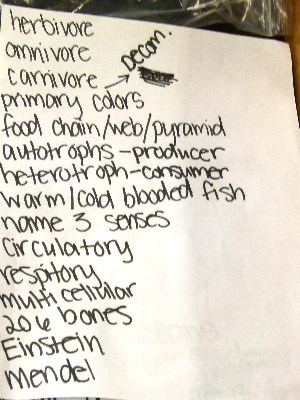 herbivore
omnivore
Decom.
carnivore
primary colors
food chain/web/pyramid
autotrophs-producer
heterotroph-consumer
warm/cold blooded fish
name 3 senses
circulatory
respitory
multicellular
206 bones
Einstein
Mendel